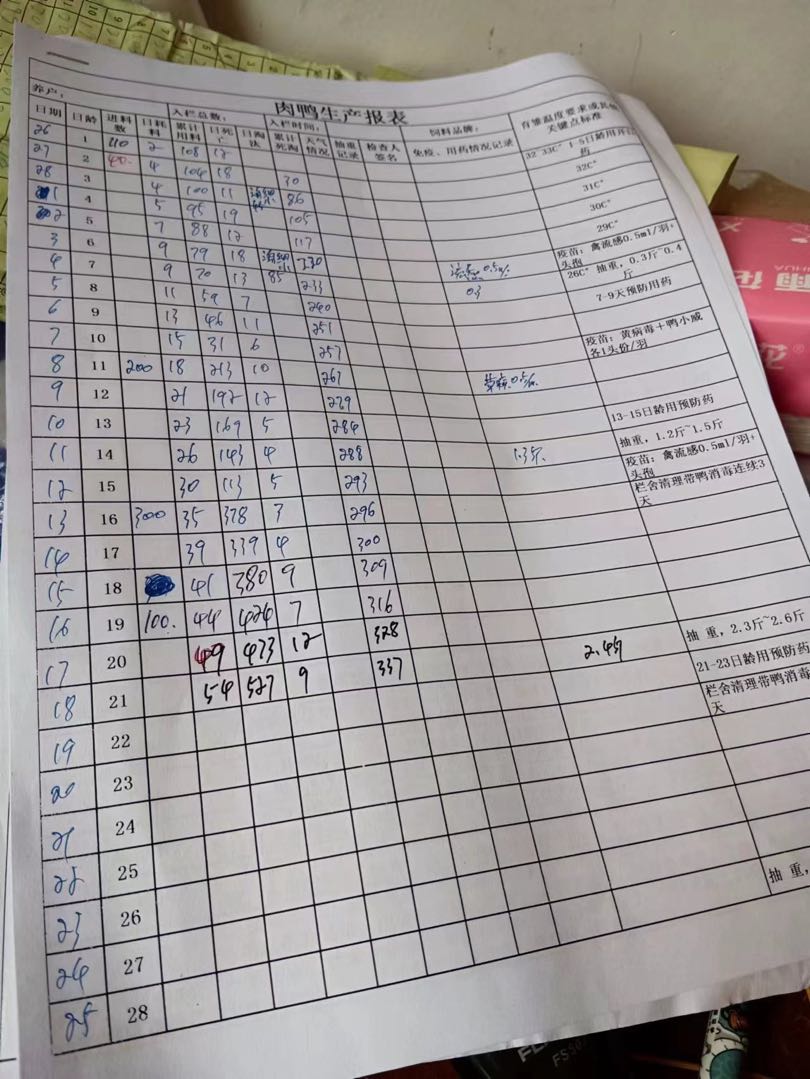 肉鸭生产报表
养户： 入栏总数： 入栏时间： 饲料品牌：
日期 日龄 进料数 日耗料 累计用料 日死亡 日淘汰 累计死淘 天气情况 抽重记录 检查人签名 免疫、用药情况记录 育雏温度要求或其他关键点标准
26 1 110 2 108 12
27 2 40. 4 104 18 30 32C°
28 3 4 100 11 31C°
1 4 5 95 19 105 30C°
2 5 7 88 12 117 29C°
3 6 9 79 18
4 7 9 70 13 85 233 0.3 26C° 抽重，0.3斤~0.4斤
5 8 11 59 7 240 7-9天预防用药
6 9 13 46 11 251
7 10 15 31 6 257 疫苗：黄病毒＋鸭小减各1头份/羽
8 11 200 18 213 10 267
9 12 21 192 12 279
10 13 23 169 5 284 13-15日龄用预防药
11 14 26 143 4 288 1.3斤. 抽重，1.2斤~1.5斤
12 15 30 113 5 293 疫苗：禽流感0.5ml/羽+头孢
13 16 300 35 378 3 296 栏舍清理带鸭消毒连续3天
14 17 39 339 4 300
15 18 41 380 9 309
16 19 100. 44 424 7 316
17 20 49 473 12 328 2.4斤 抽 重，2.3斤~2.6斤
18 21 54 527 9 337 21-23日龄用预防药
19 22 栏舍清理带鸭消毒
天
20 23
21 24
22 25
23 26 抽 重，
24 27
25 28